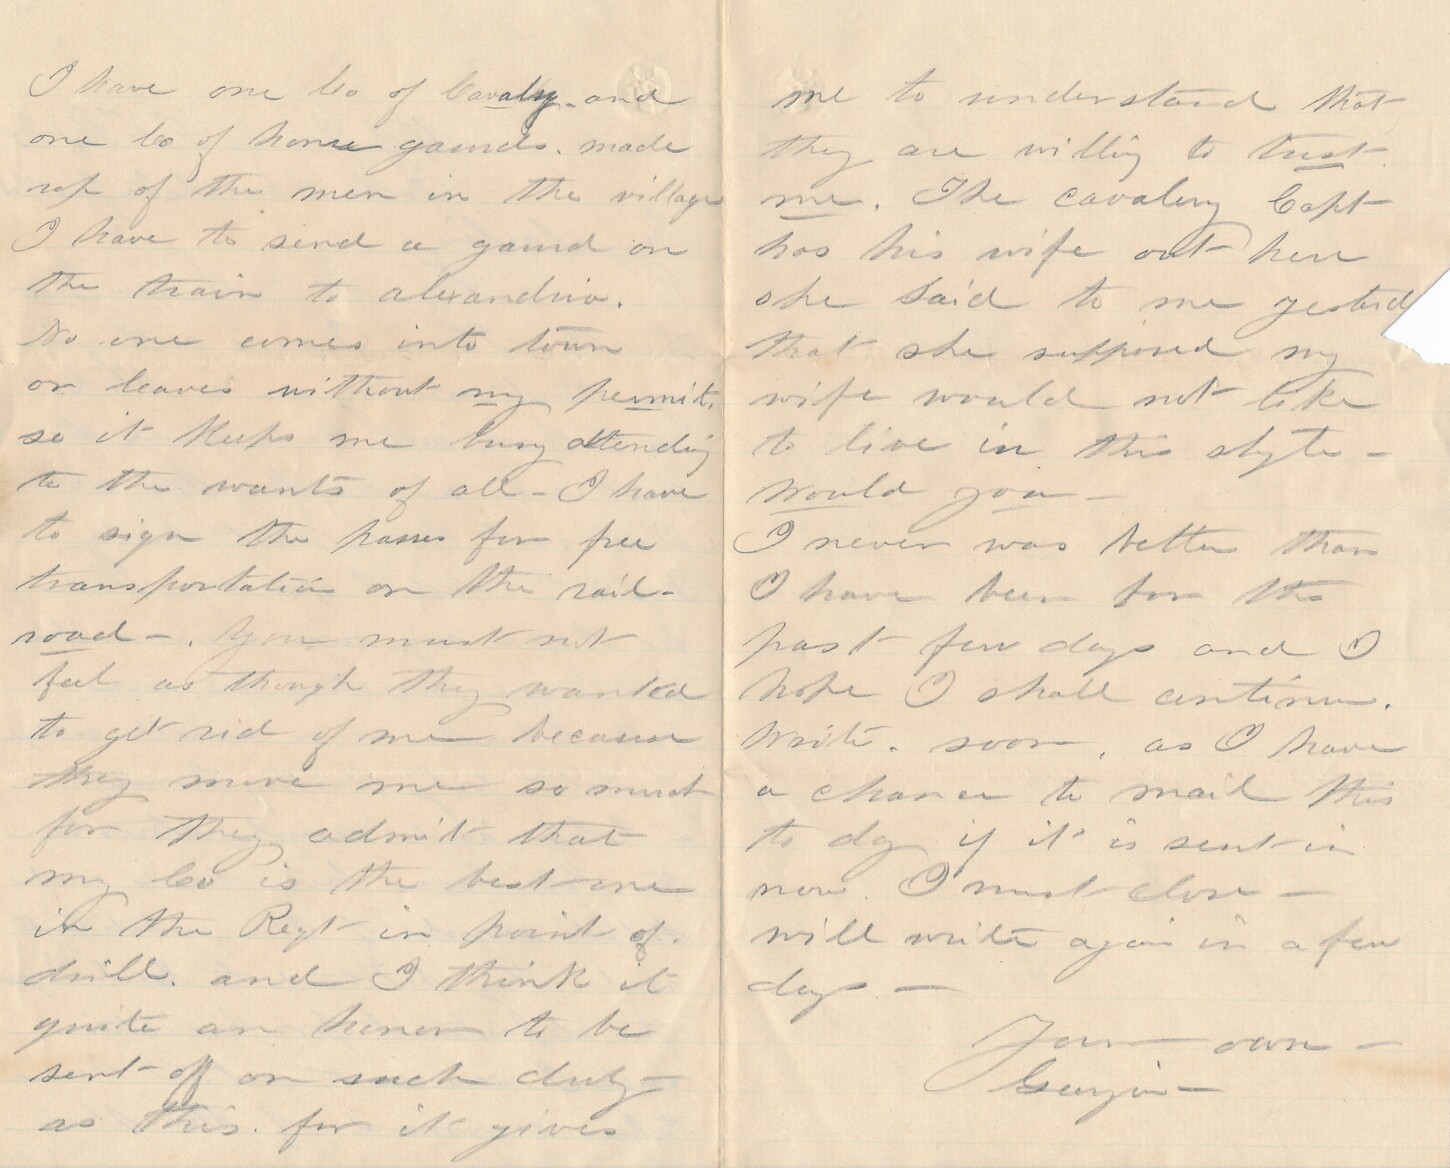 I have one Co of Cavalry. and
one Co of home gaurds. made
up of the men in the village
I have to send a gaurd on
the train to alexandria.
No one comes into town
or leaves without my permit.
so it keeps me busy attending
to the wants of all - I have
to sign the passes for free
transportation on the rail-
road -. You must not
feel as though they wanted
to get rid of me because
they move me so much
for they admit that
my Co is the best one
in the Regt in point of.
drill. and I think it
quite an honor to be
sent off on such duty
as this. for it gives
me to understand that
they are willig to trust
me. The cavalery Capt
has his wife out here
she said to me yesterd
that she supposed my
wife would not like
to live in this style -
Would you -
I never was better than
I have been for the
past few days and I
hope I shall continue.
Write. soon, as I have
a chance to mail this
to day if it is sent in
now. I must close -
will write again in a few
days -
Your own -
Georgie -